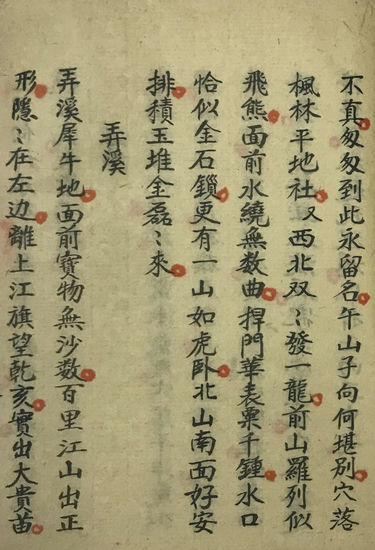 不真匆匆到此永留名午山子向何堪别穴落
楓林平地社又西北双〻發一龍前山羅列似
飛熊面前水繞無数曲捍門華表粟千鍾水口
恰似金石鎖更有一山如虎卧北山南面好安
排積玉堆金磊〻來
弄溪
弄溪犀牛地面前寶物無沙数百里江山出正
形隱〻在左边離上江旗望乾亥實出大貴苗